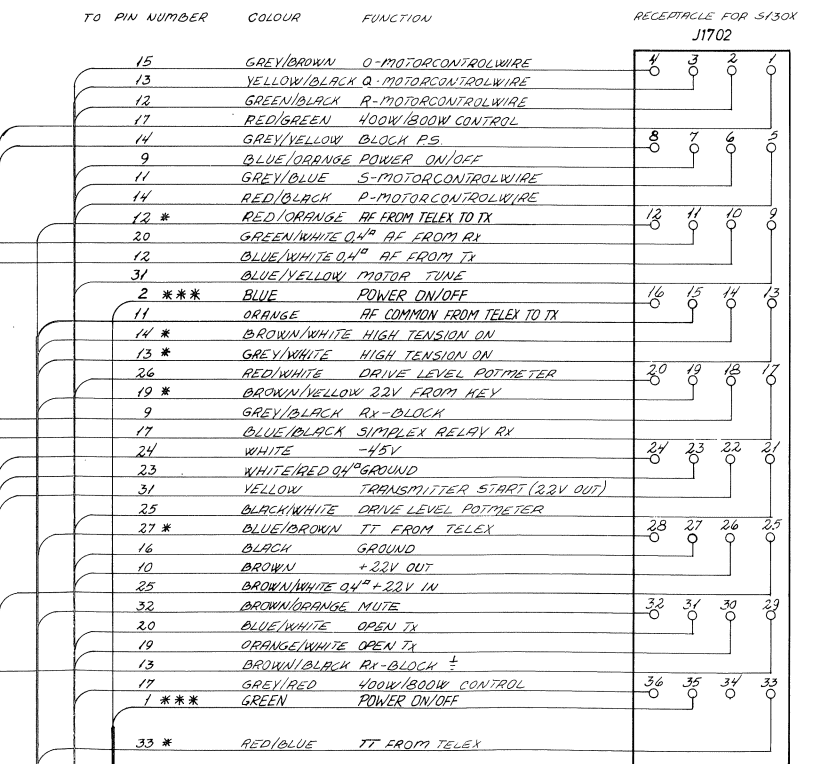 TO PIN NUMBER COLOUR FUNCTION RECEPTACLE FOR S130X
J1702
15 GREY/BROWN O-MOTORCONTROLWIRE 4 3 2 1
13 YELLOW/BLACK Q-MOTORCONTROLWIRE
12 GREEN/BLACK R-MOTORCONTROLWIRE
17 RED/GREEN 400W/800W CONTROL
14 GREY/YELLOW BLOCK P.S. 8 7 6 5
9 BLUE/ORANGE POWER ON/OFF
11 GREY/BLUE S-MOTORCONTROLWIRE
14 RED/BLACK P-MOTORCONTROLWIRE
12 * RED/ORANGE AF FROM TELEX TO TX 12 11 10 9
20 GREEN/WHITE 0,4¤ AF FROM RX
12 BLUE/WHITE 0,4¤ AF FROM TX
31 BLUE/YELLOW MOTOR TUNE
2 *** BLUE POWER ON/OFF 16 15 14 13
11 ORANGE AF COMMON FROM TELEX TO TX
14 * BROWN/WHITE HIGH TENSION ON
13 * GREY/WHITE HIGH TENSION ON
26 RED/WHITE DRIVE LEVEL POTMETER 20 19 18 17
19 * BROWN/YELLOW 22V FROM KEY
9 GREY/BLACK RX-BLOCK
17 BLUE/BLACK SIMPLEX RELAY RX
24 WHITE -45V 24 23 22 21
23 WHITE/RED 0,4¤ GROUND
31 YELLOW TRANSMITTER START (22V OUT)
25 BLACK/WHITE DRIVE LEVEL POTMETER
27 * BLUE/BROWN TT FROM TELEX 28 27 26 25
16 BLACK GROUND
10 BROWN +22V OUT
25 BROWN/WHITE 0,4¤ +22V IN
32 BROWN/ORANGE MUTE 32 31 30 29
20 BLUE/WHITE OPEN TX
19 ORANGE/WHITE OPEN TX
13 BROWN/BLACK RX-BLOCK ⏚
17 GREY/RED 400W/800W CONTROL 36 35 34 33
1 *** GREEN POWER ON/OFF
33 * RED/BLUE TT FROM TELEX